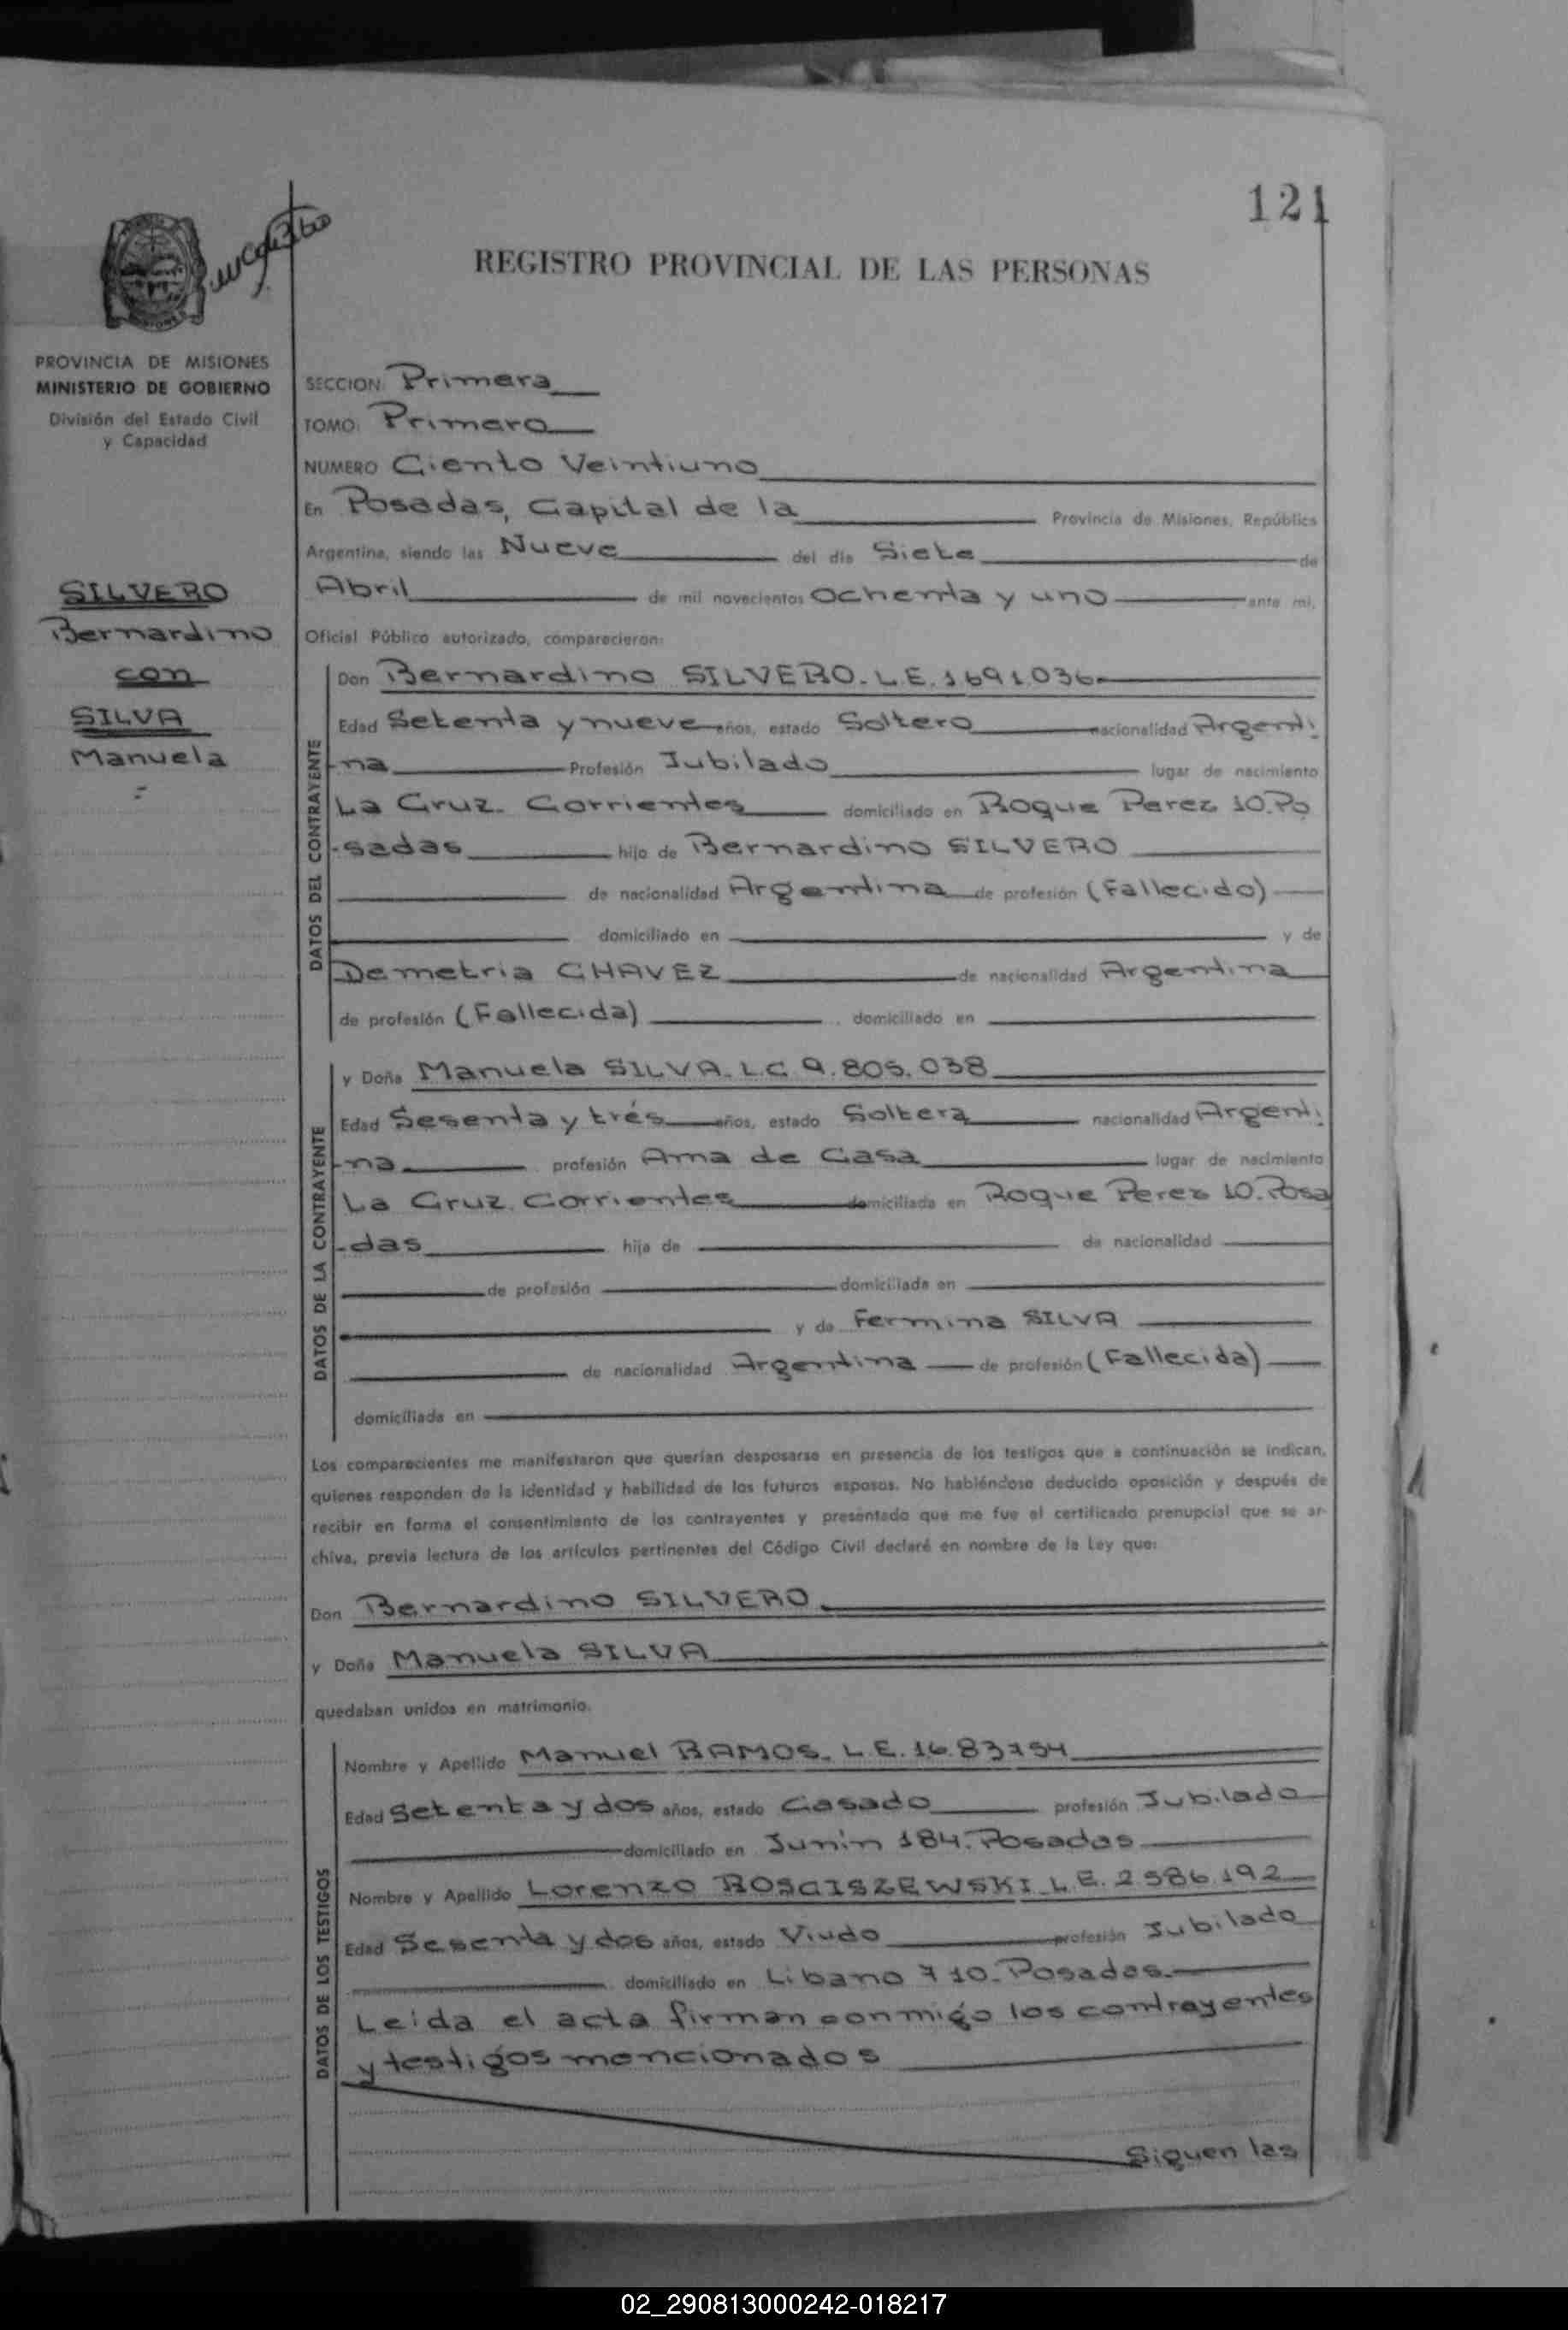 121
REGISTRO PROVINCIAL DE LAS PERSONAS
PROVINCIA DE MISIONES
MINISTERIO DE GOBIERNO
División del Estado Civil
y Capacidad
SILVERO
Bernardino
con
SILVA
Manuela
SECCION: Primera
TOMO: Primero
NUMERO Ciento Veintiuno
En Posadas, Capital de la Provincia de Misiones, República
Argentina, siendo las Nueve del día Siete de
Abril de mil novecientos Ochenta y uno ante mi,
Oficial Público autorizado, comparecieron:
DATOS DEL CONTRAYENTE
Don Bernardino SILVERO. L.E. 1691036
Edad Setenta y nueve años, estado Soltero nacionalidad Argenti
-na Profesión Jubilado lugar de nacimiento
La Cruz. Corrientes domiciliado en Roque Perez 10. Po
-sadas hijo de Bernardino SILVERO
de nacionalidad Argentina de profesión (Fallecido)
domiciliado en y de
Demetria CHAVEZ de nacionalidad Argentina
de profesión (Fallecida) domiciliado en
DATOS DE LA CONTRAYENTE
y Doña Manuela SILVA. L.C 9.805.038
Edad Sesenta y trés años, estado Soltera nacionalidad Argenti
-na profesión Ama de Casa lugar de nacimiento
La Cruz. Corrientes domiciliada en Roque Perez 10. Posa
-das hija de de nacionalidad
de profesión domiciliada en
y de Fermina SILVA
de nacionalidad Argentina de profesión (Fallecida)
domiciliada en
Los comparecientes me manifestaron que querían desposarse en presencia de los testigos que a continuación se indican,
quienes responden de la identidad y habilidad de los futuros esposos. No habiéndose deducido oposición y después de
recibir en forma el consentimiento de los contrayentes y presentado que me fue el certificado prenupcial que se ar-
chiva, previa lectura de los artículos pertinentes del Código Civil declaré en nombre de la Ley que:
Don Bernardino SILVERO
y Doña Manuela SILVA
quedaban unidos en matrimonio.
DATOS DE LOS TESTIGOS
Nombre y Apellido Manuel RAMOS. L.E. 16.83754
Edad Setenta y dos años, estado Casado profesión Jubilado
domiciliado en Junin 184. Posadas
Nombre y Apellido Lorenzo ROSCISZEWSKI L.E. 2586.192
Edad Sesenta y dos años, estado Viudo profesión Jubilado
domiciliado en Libano 710. Posadas.
Leida el acta firman conmigo los contrayentes
y testigos mencionados
Siguen las
02_290813000242-018217